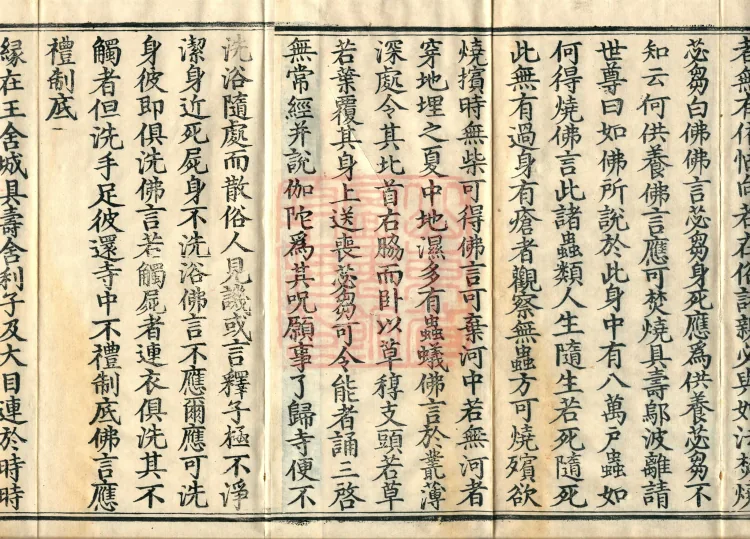 苾芻白佛佛言苾芻身死應爲供養苾芻不
知云何供養佛言應可焚燒具壽鄔波離請
世尊曰如佛所說於此身中有八萬戶蟲如
何得燒佛言此諸蟲類人生隨生若死隨死
此無有過身有瘡者觀察無蟲方可燒殯欲
燒擯時無柴可得佛言可棄河中若無河者
穿地埋之夏中地濕多有蟲蟻佛言於叢薄
深處令其北首右脇而臥以草稕支頭若草
若葉覆其身上送喪苾芻可令能者誦三啓
無常經并說伽陀爲其呪願事了歸寺便不
洗浴隨處而散俗人見譏或言釋子極不淨
潔身近死屍身不洗浴佛言不應爾應可洗
身彼即俱洗佛言若觸屍者連衣俱洗其不
觸者但洗手足彼還寺中不禮制底佛言應
禮制底
緣在王舍城具壽舍利子及大目連於時時